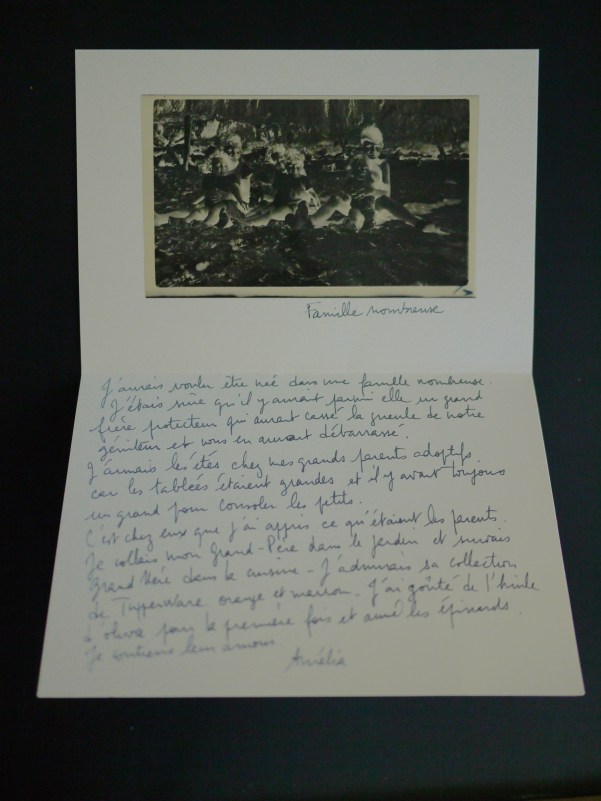 Famille nombreuse
J'aurais voulu être née dans une famille nombreuse.
J'étais sûre qu'il y aurait parmi elle un grand
frère protecteur qui aurait cassé la gueule de notre
géniteur et nous en aurait débarrassé.
J'aimais les étés chez mes grands parents adoptifs
car les tablées étaient grandes et il y avait toujours
un grand pour consoler les petits.
C'est chez eux que j'ai appris ce qu'étaient les parents.
Je collais mon Grand-Père dans le jardin et suivais
Grand Mère dans la cuisine - J'admirais sa collection
de Tupperware orange et marron. J'ai goûté de l'huile
d'olive pour la première fois et aimé les épinards.
Je leur amour
Amélia